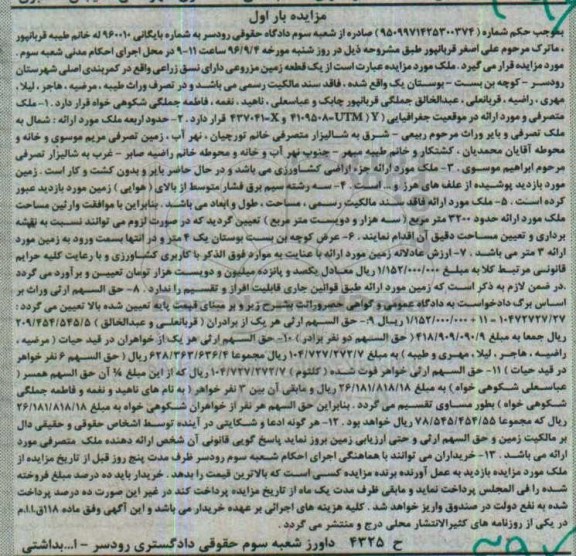 مزایده بار اول
بموجب حکم شماره (۹۵۰۹۹۷۱۴۲۵۳۰۰۳۷۴) صادره از شعبه سوم دادگاه حقوقی رودسر به شماره بایگانی ۹۶۰۰۱۰ له خانم طیبه قربانپور
، ماترک مرحوم علی اصغر قربانپور طبق مشروحه ذیل در روز شنبه مورخه ۹۶/۹/۴ ساعت ۱۱-۹ در محل اجرای احکام مدنی شعبه سوم .
مورد مزایده قرار می گیرد. ملک مورد مزایده عبارت است از یک قطعه زمین مزروعی دارای نسق زراعی واقع در کمربندی اصلی شهرستان
رودسر - کوچه بن بست - بوستان یک واقع شده . فاقد سند مالکیت رسمی می باشد و در تصرف وراث طیبه ، مرضیه ، هاجر ، لیلا ،
مهری ، راضیه ، قربانعلی ، عبدالخالق جملگی قربانپور چابک و عباسعلی ، ناهید ، نغمه ، فاطمه جملگی شکوهی خواه قرار دارد . ۱- ملک
متصرفی و مورد ارائه در موقعیت جغرافیایی (UTM ( Y-۴۱۰۹۵۰۸ و X-۴۳۷۰۴۱ قرار دارد . ۲- حدود اربعه ملک مورد ارائه : شمال به
ملک تصرفی و بایر وراث مرحوم ربیعی - شرق به شالیزار متصرفی خانم تورچیان ، نهر آب ، زمین تصرفی مریم موسوی و خانه و
محوطه آقایان محمدیان ، کشتکار و خانم طیبه سپهر - جنوب نهر آب و خانه و محوطه خانم راضیه صابر - غرب به شالیزار تصرفی
مرحوم ابراهیم موسوی . ۳- ملک مورد ارائه جزء اراضی کشاورزی می باشد و در حال حاضر بایر و بدون کشت و کار است . زمین
مورد بازدید پوشیده از علف های هرز و ... است . ۴- سه رشته سیم برق فشار متوسط از بالای ( هوایی ) زمین مورد بازدید عبور
کرده است . ۵- ملک مورد ارائه فاقد سند مالکیت رسمی ، مساحت ، طول و ابعاد می باشد . بنابراین با موافقت وارثین مساحت
ملک مورد ارائه حدود ۳۲۰۰ متر مربع ( سه هزار و دویست متر مربع ) تعیین گردید که در صورت لزوم می توانند نسبت به نقشه
برداری و تعیین مساحت دقیق آن اقدام نمایند . ۶- عرض کوچه بن بست بوستان یک ۴ متر و در انتها بسمت ورود به زمین مورد
ارائه ۳ متر می باشد . ۷- ارزش عادلانه زمین مورد ارائه با عنایت به موارد فوق الذکر با کاربری کشاورزی و با رعایت کلیه حرایم
قانونی مرتبط کلا به مبلغ ۱/۱۵۲/۰۰۰/۰۰۰ ریال معادل یکصد و پانزده میلیون و دویست هزار تومان تعیین و برآورد می گردد
.در ضمن لازم به ذکر است که زمین مورد ارائه طبق قوانین جاری قابلیت افراز و تقسیم را ندارد . ۸- حق السهم ارثی وراث بر
اساس برگ دادخواست به دادگاه عمومی و گواهی حصروراثت بشرح زیر و بر مبنای قیمت پایه تعیین شده بالا تعیین می گردد :
۱۰۴۷۲۷۲۷/۲۷ = ۱۱ ÷ ۱/۱۵۲/۰۰۰/۰۰۰ ریال ۹- حق السهم ارثی هر یک از برادران ( قربانعلی و عبدالخالق ) ۲۰۹/۴۵۴/۵۴۵/۵
ریال جمعا به مبلغ ۴۱۸/۹۰۹/۰۹۰/۹ (حق السهم دو نفر برادر) ۱۰- حق السهم ارثی هر یک از خواهران در قید حیات ( مرضیه ،
راضیه ، هاجر ، لیلا ، مهری و طیبه ) به مبلغ ۱۰۴/۷۲۷/۲۷۲/۷ ریال مجموعا ۶۲۸/۳۶۳/۶۳۶/۴ ریال ( حق السهم ۶ نفر خواهر
در قید حیات ) ۱۱- حق السهم ارثی خواهر فوت شده ( کلثوم ) ۱۰۴/۷۲۷/۲۷۲/۷ ریال که از این مبلغ ¼ آن حق السهم همسر (
عباسعلی شکوهی خواه ) به مبلغ ۲۶/۱۸۱/۸۱۸/۱۸ ریال و مابقی آن بین ۳ نفر خواهر ( به نام های ناهید و نغمه و فاطمه جملگی
شکوهی خواه ) بطور مساوی تقسیم می گردد . بنابراین حق السهم هر نفر از خواهران شکوهی خواه به مبلغ ۲۶/۱۸۱/۸۱۸/۱۸
ریال که مجموعا ۷۸/۵۴۵/۴۵۴/۵۵ ریال خواهد بود . ۱۲- هر گونه ادعا و شکایتی در آینده توسط اشخاص حقوقی و حقیقی دال
بر مالکیت زمین و حق السهم ارثی و حتی ارزیابی زمین بروز نماید پاسخ گویی قانونی آن شخص ارائه دهنده ملک متصرفی مورد
ارائه می باشد . ۱۳- خریداران می توانند با هماهنگی اجرای احکام شعبه سوم رودسر ظرف مدت پنج روز قبل از تاریخ مزایده از
ملک مورد مزایده بازدید به عمل آورنده برنده مزایده کسی است که بالاترین قیمت را بدهد . خریدار باید ده درصد مبلغ فروخته
شده را فی المجلس پرداخت نماید و مابقی ظرف مدت یک ماه از تاریخ مزایده پرداخت کند در غیر این صورت ده درصد پرداخت
شده به نفع دولت در صندوق واریز خواهد شد . کلیه هزینه های اجرائی بر عهده خریدار می باشد و این آگهی وفق ماده ۱۱۸ق.ا.ا.م
در یکی از روزنامه های کثیرالانتشار محلی درج و منتشر می گردد .
ح ۴۳۲۵ داورز شعبه سوم حقوقی دادگستری رودسر - ا...بداشتی